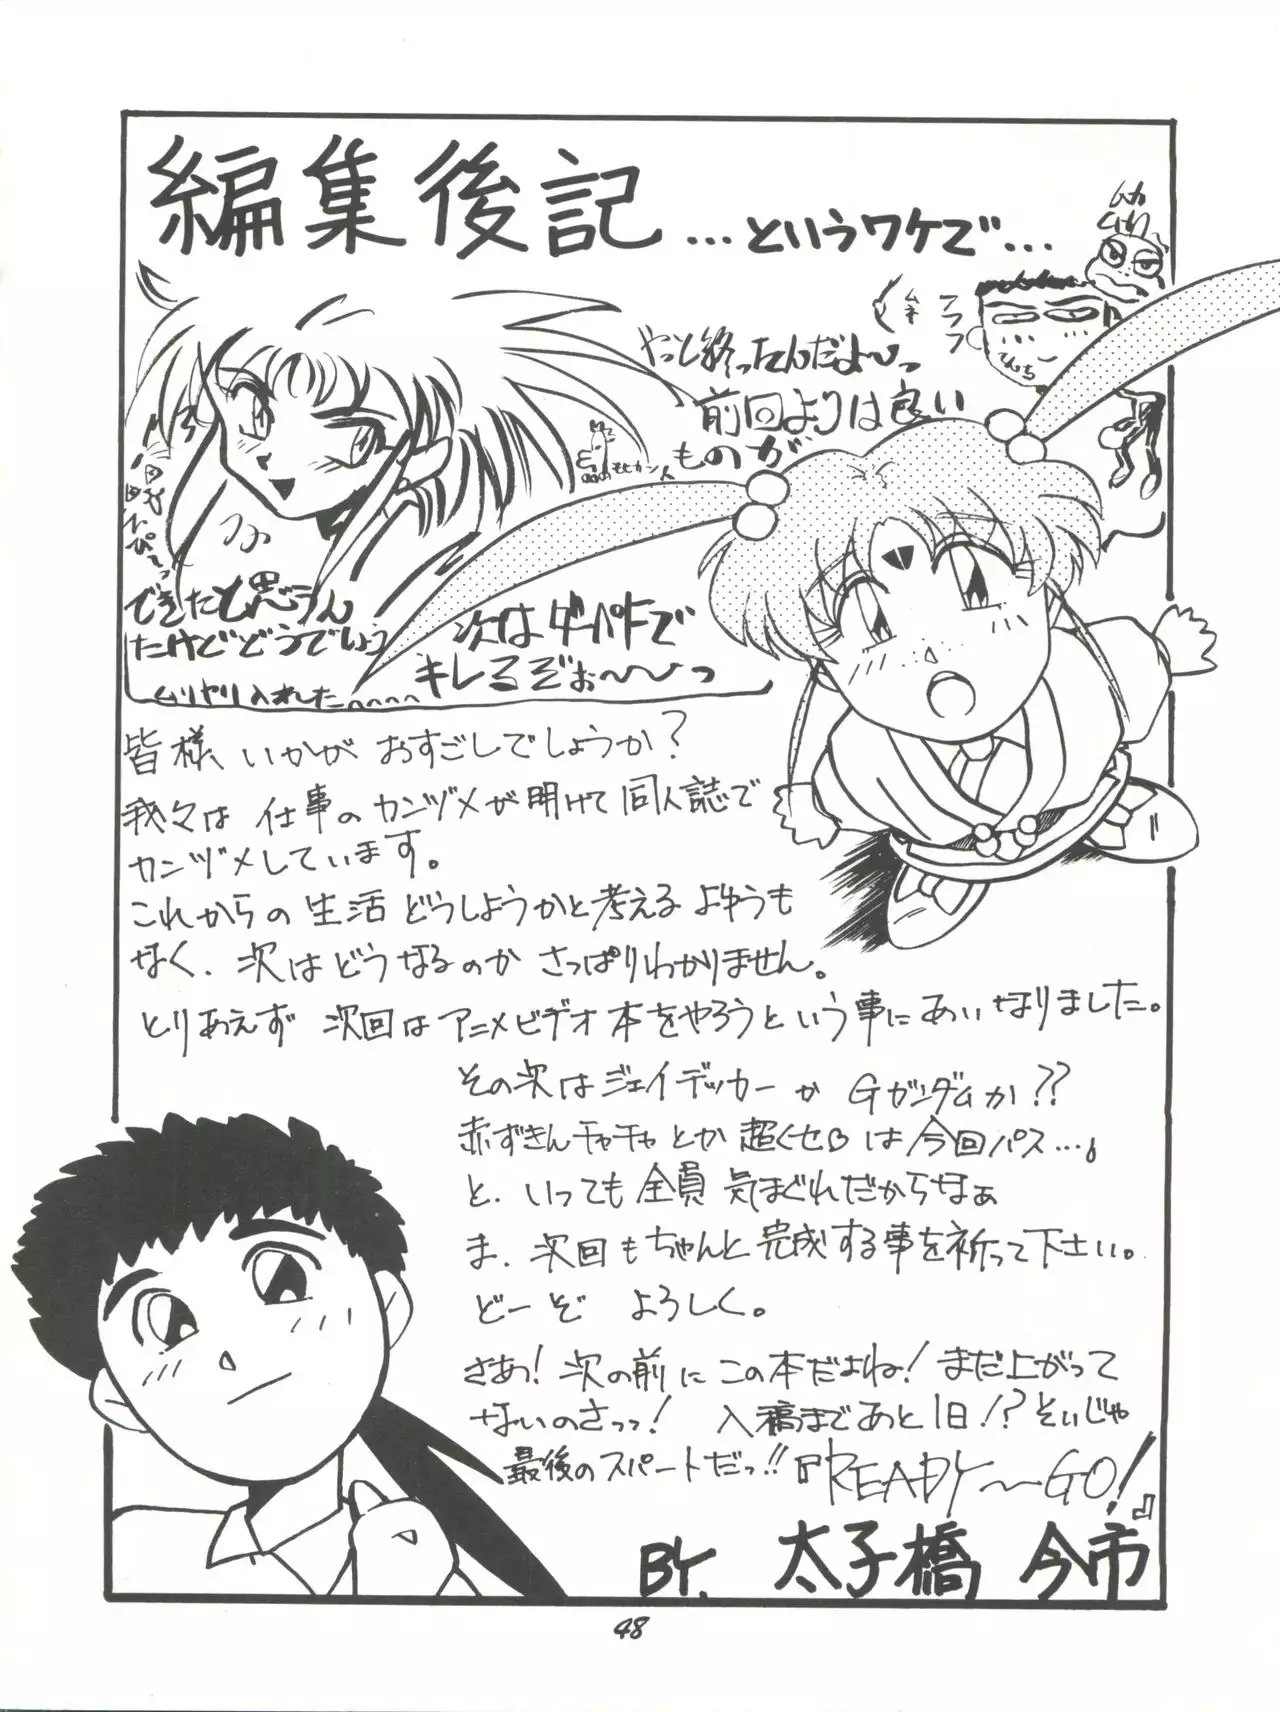 編集後記…というワケで…
やっと終ったんだよ〜っ
前回よりは良い
ものが
できたと思うん
だけどどうでしょう
ムリヤリ入れした
モヒカン人
次はダーパトで
キレるぞぉ〜〜っ
皆様、いかがおすごしでしょうか?
我々は仕事のカンヅメが明けて同人誌で
カンヅメしています。
これからの生活どうしようかと考えるよゆうも
なく、次はどうなるのかさっぱりわかりません。
とりあえず次回はアニメビデオ本をやろうという事にあいなりました。
その次はジェイデッカーかGガンダムか??
赤ずきんチャチャとか超くせBは今回パス…。
と、いっても全員気まぐれだからなぁ
ま、次回もちゃんと完成する事を祈って下さい。
どーぞよろしく。
さあ!次の前にこの本だよね!まだ上がって
ないのさっっ!入稿まであと1日!?そいじゃ
最後のスパートだっ!!『READY〜GO!』
BY. 太子橋 今市
48